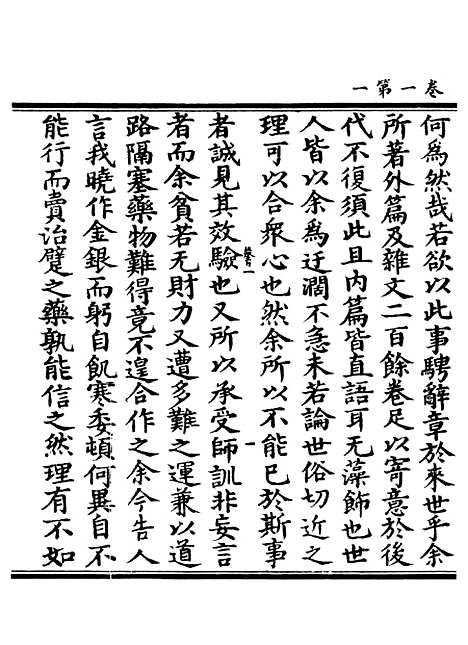 卷一第一
何爲然哉若欲以此事騁辭章於來世乎余
所著外篇及雜文二百餘卷足以寄意於後
代不復須此且內篇皆直語耳无藻飾也世
人皆以余爲迂濶不急未若論世俗切近之
理可以合衆心也然余所以不能已於斯事
卷一 一
者誠見其效驗也又所以承受師訓非妄言
者而余貧若无財力又遭多難之運兼以道
路隔塞藥物難得竟不遑合作之余今告人
言我曉作金銀而躬自飢寒委頓何異自不
能行而賣治躄之藥孰能信之然理有不如